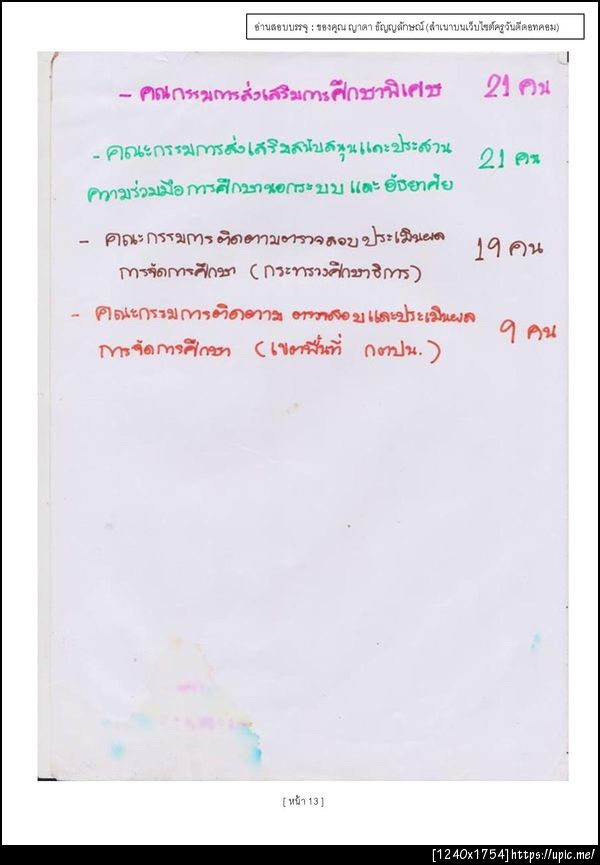 อ่านสอบบรรจุ : ของคุณ ญาดา ธัญญลักษณ์ (สำเนาบนเว็บไซต์ครูวันดีดอทคอม)
- คณกรรมการส่งเสริมการศึกษาพิเศษ 21 คน
- คณะกรรมการส่งเสริมสนับสนุนและประสาน 21 คน
ความร่วมมือการศึกษานอกระบบ และ อัธยาศัย
- คณะกรรมการติดตามตรวจสอบประเมินผล 19 คน
การจัดการศึกษา (กระทรวงศึกษาธิการ)
- คณะกรรมการติดตาม ตรวจสอบและประเมินผล 9 คน
การจัดการศึกษา (เขตพื้นที่ กตปน.)
[ หน้า 13 ]
[1240x1754]https://upic.me/